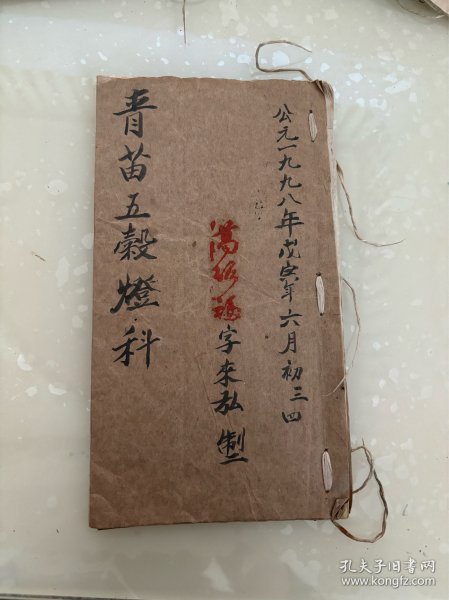 公元一九九八年戊寅年六月初三四
字来弘制
青苗五穀燈科
孔夫子旧书网
www.kongfz.com